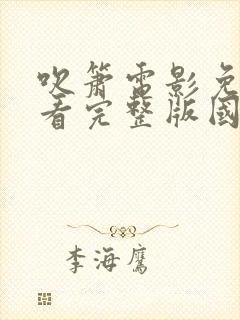 吹簫電影免
看完整版國
李海鷹